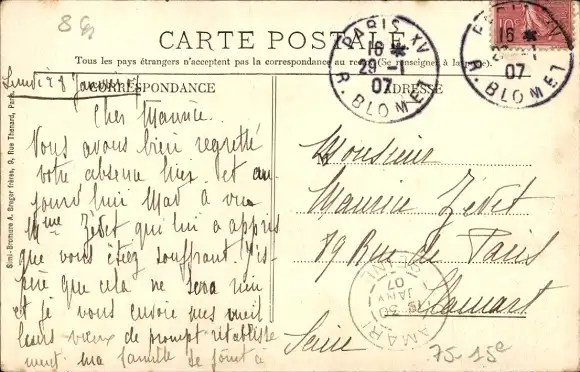 8 G
CARTE POSTALE
Tous les pays étrangers n'acceptent pas la correspondance au recto (Se renseigner à la poste).
CORRESPONDANCE
ADRESSE
PARIS XV
16 *
29 -1
07
R. BLOMET
PARIS XV
16 *
29 -1
07
R. BLOMET
10c
Lundi 28 Janvier
Cher Maurice.
Vous avons bien regretté
votre absence hier et au-
jourd'hui Mad a vu
Mme Zédet qui lui a appris
que vous étiez souffrant. J'es-
père que cela ne sera rien
et je vous envoie mes meil
leurs vœux de prompt rétablisse
ment ma famille se joint à
Monsieur
Maurice Zédet
89 Rue de Paris
Clamart
Seine
CLAMART
SEINE
JANV
07
75-15e
Simi-Bromure A. Breger frères, 9, Rue Thénard, Paris